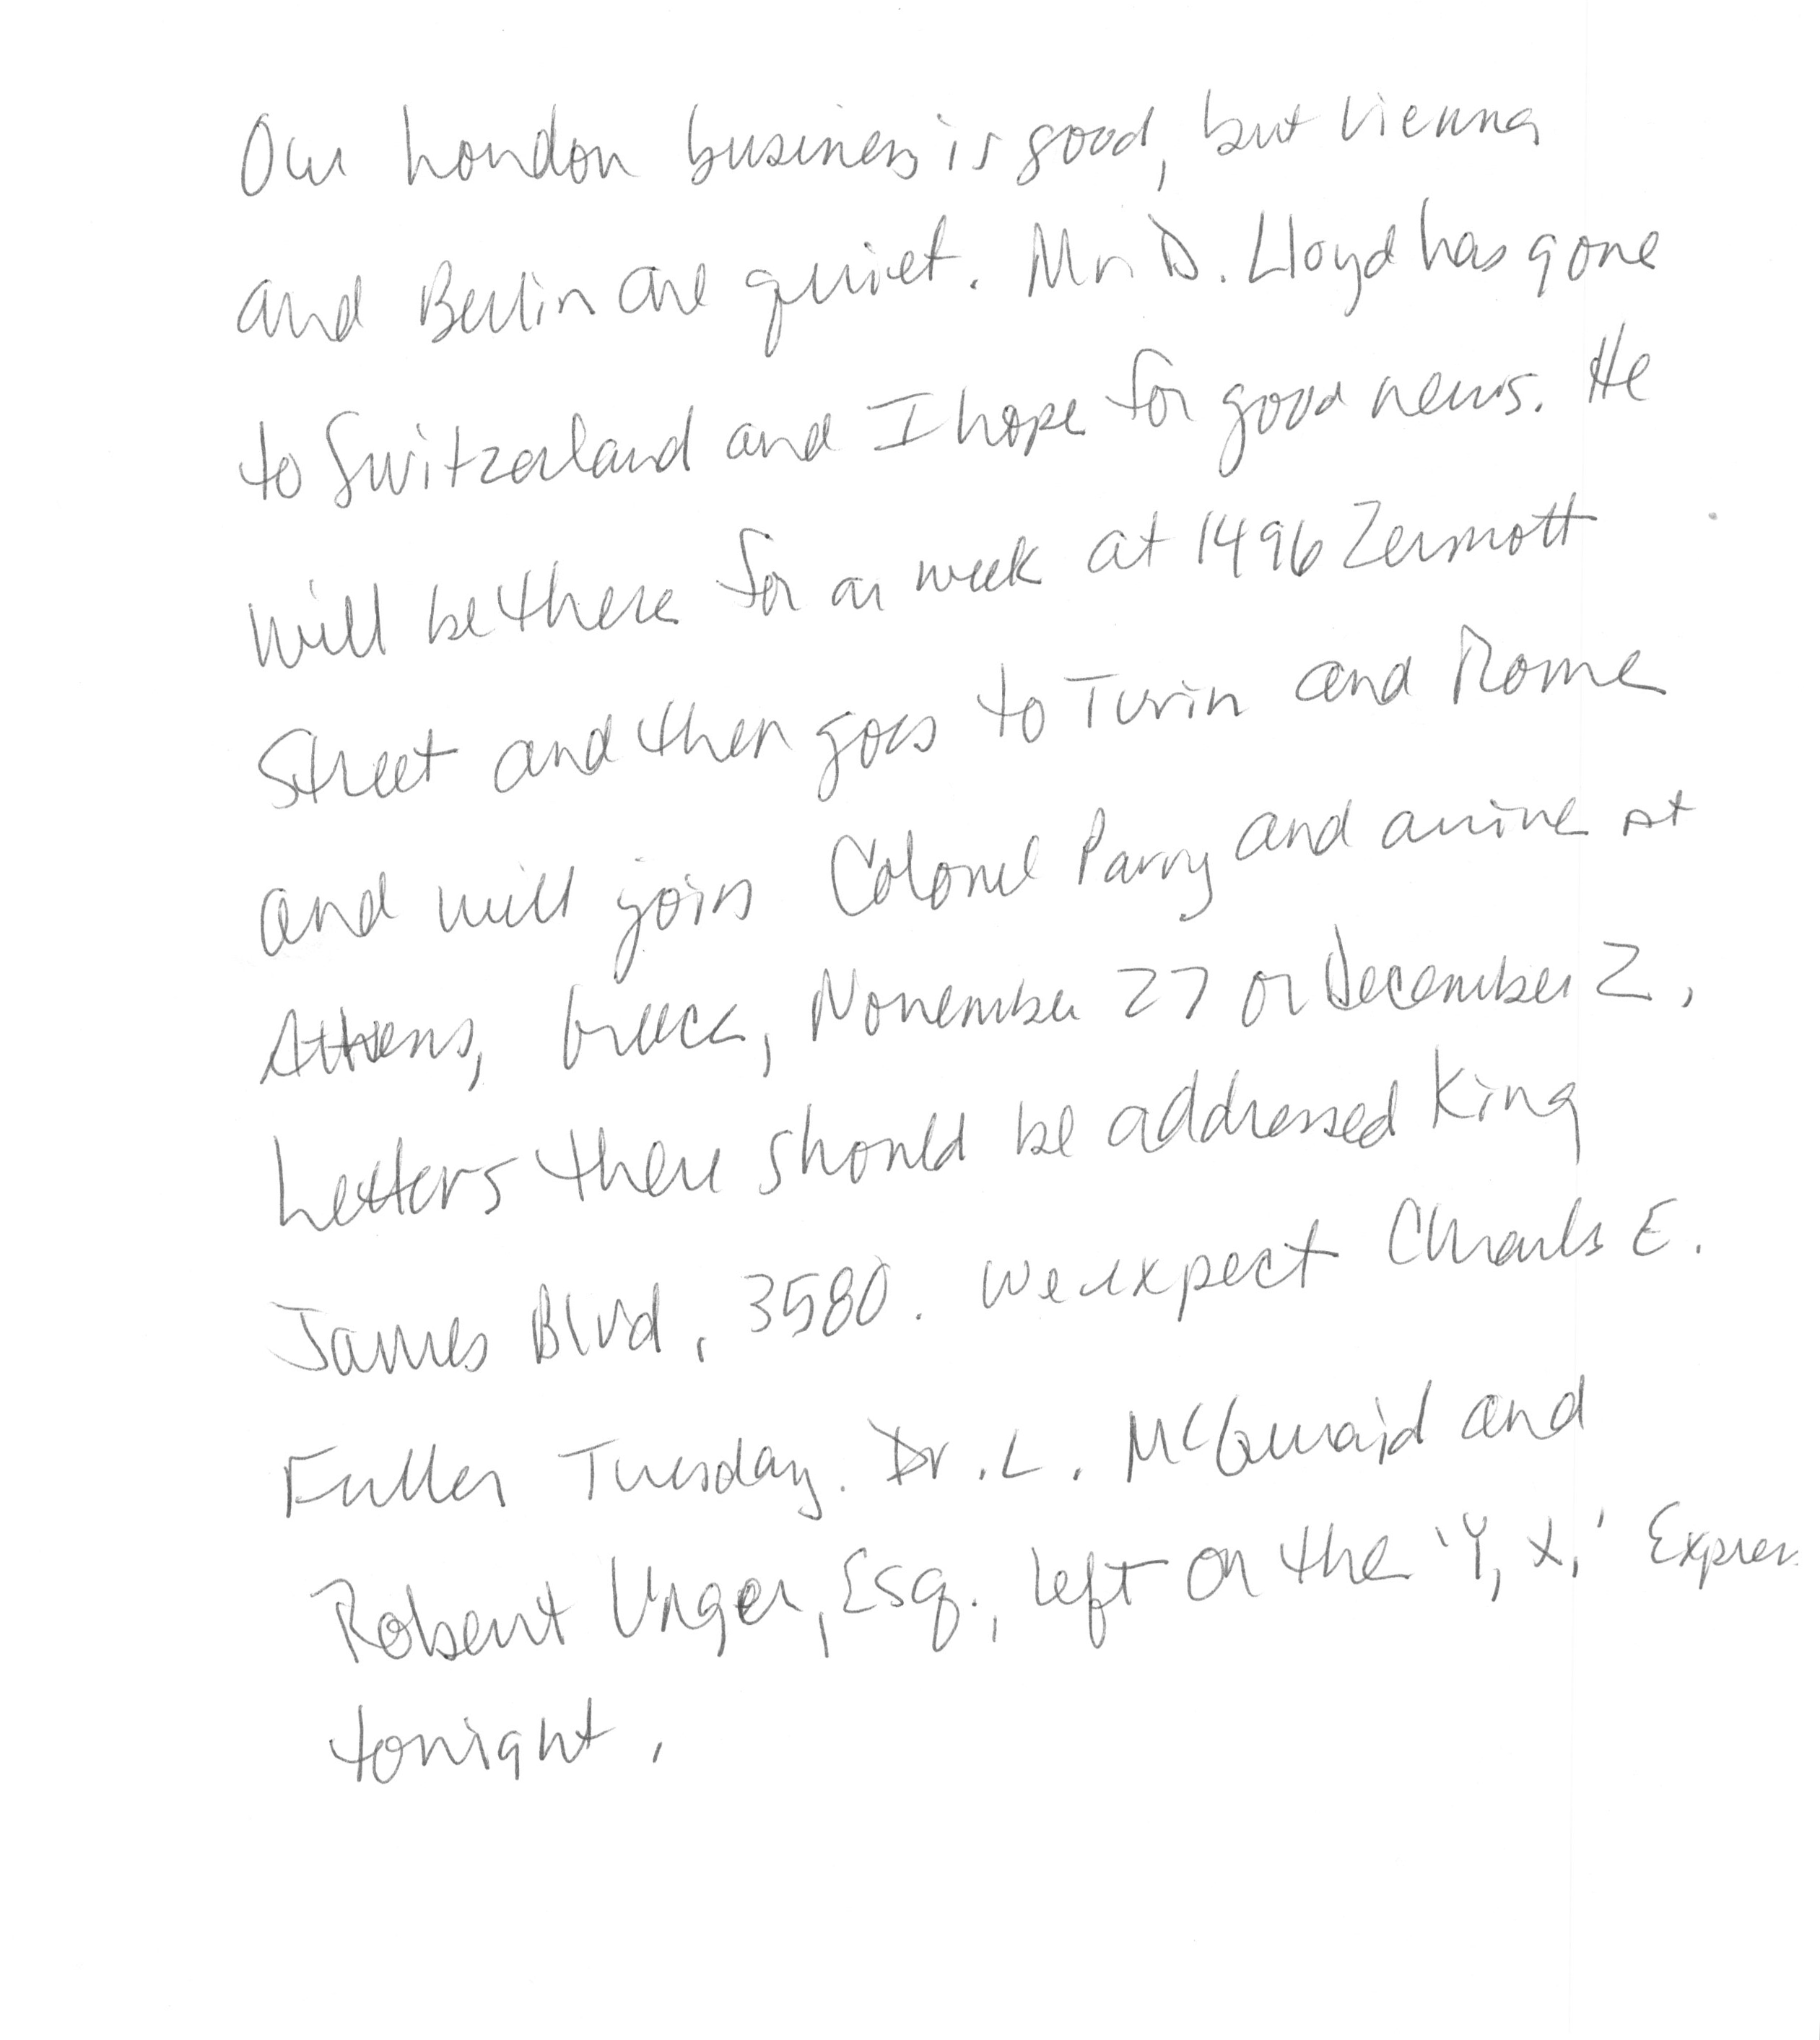 Our London business is good, but Vienna
and Berlin are quiet. Mr. D. Lloyd has gone
to Switzerland and I hope for good news. He
will be there for a week at 1496 Zermott
Street and then goes to Turin and Rome
and will join Colonel Parry and arrive at
Athens, Greece, November 27 or December 2.
Letters there should be addressed King
James Blvd. 3580. We expect Charles E.
Fuller Tuesday. Dr. L. McQuaid and
Robert Unger, Esq., left on the 'Y, X,' Express
tonight.